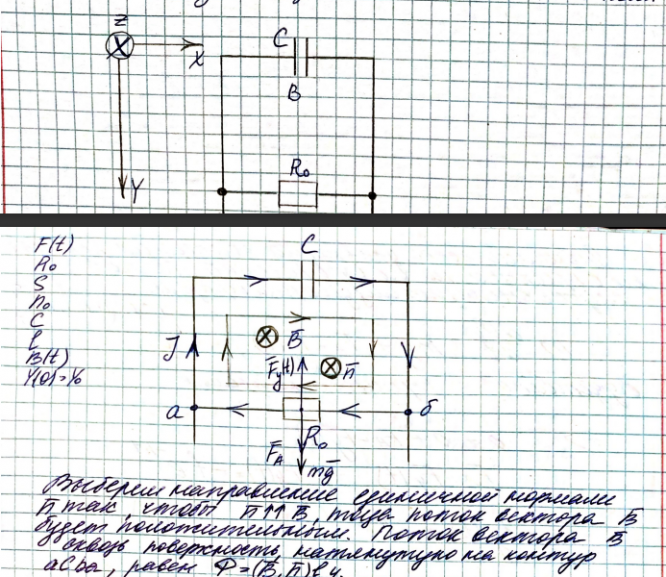 Z
X
C
B
R₀
Y
F(t)
R₀
S
n₀
C
l
B(t)
Y(0)=Y₀
C
J
B̄
F̄y(t)
n̄
a
б
R₀
F̄A
mḡ
Выберем направление единичной нормали
n̄ так, чтобы n̄↑↑B̄, тогда поток вектора B̄
будет положительным. Поток вектора B̄
сквозь поверхность, натянутую на контур
aCбa, равен Φ=(B̄,n̄)ly.